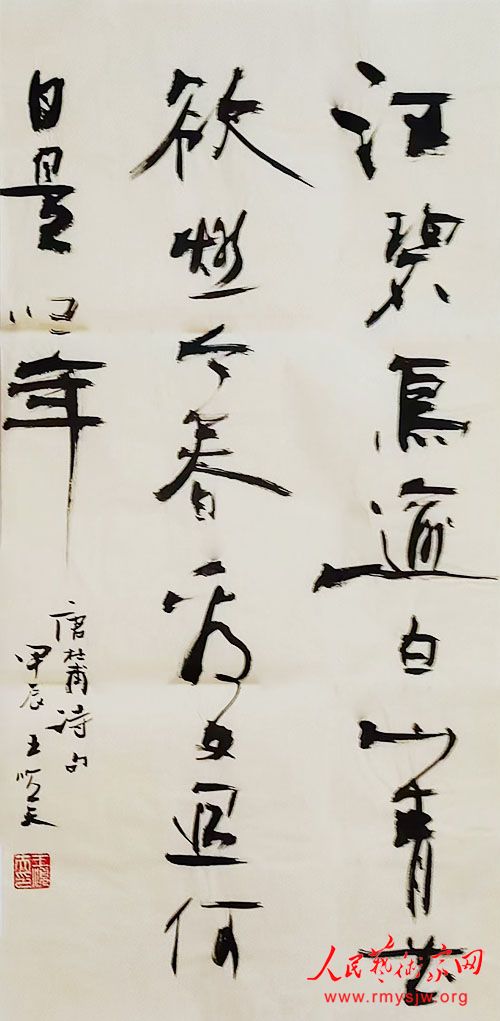 江碧鳥逾白山青花
欲燃今春看又過何
日是归年
唐杜甫诗句
甲辰 王 天
人民藝術家网
www.rmysjw.org